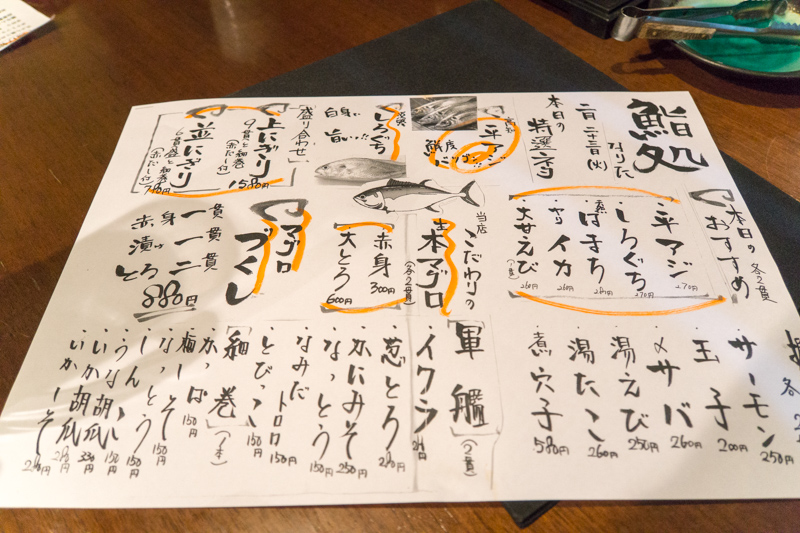 鮨処
なりた
二月二十三日(火)
本日の
特選ネタ
平アジ
鮮度
バツグン
しろぐち
白身
旨い!!
盛り合わせ
上にぎり
9貫と細巻
(赤だし付)
1580円
並にぎり
6貫盛と細巻
(赤だし付)
780円
本日の
おすすめ
各2貫
・平アジ 270円
・しろぐち 270円
・はまち
・ヤリイカ 260円
・大甘えび 260円
当店
こだわりの
本マグロ
(各2貫)
赤身 300円
大とろ 600円
マグロ
づくし
赤身 一貫
漬け 一貫
とろ 二貫
880円
・サーモン 250円
・玉子 200円
・〆サバ 260円
・湯えび 250円
・湯たこ 260円
・煮穴子 580円
軍艦
(2貫)
・イクラ
・葱とろ 280円
・かにみそ 250円
・なっとう 150円
・なみだ
・トロロ 150円
・とびっこ 150円
細巻
(1本)
・かっぱ 150円
・梅しそ 150円
・なっとう 150円
・しんこ 150円
・うな胡瓜 330円
・いか胡瓜
・いかしそ